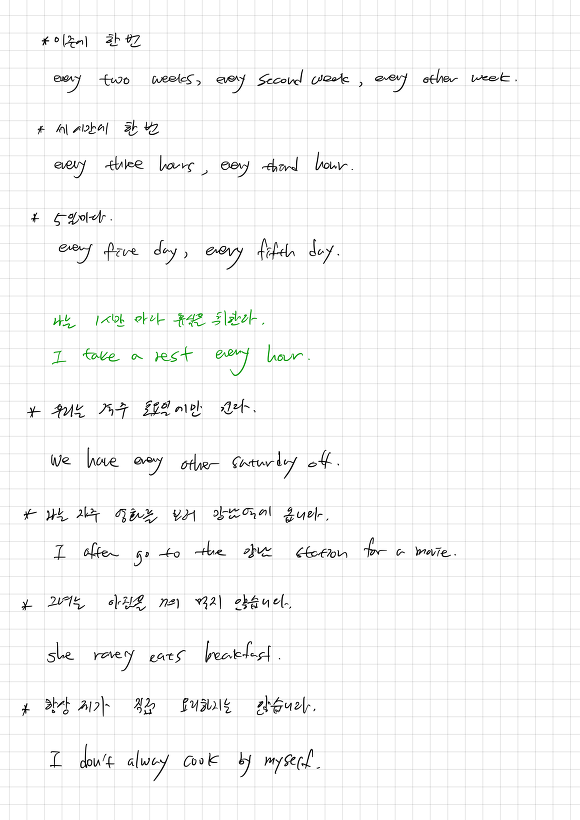 * 이주에 한 번
every two weeks, every second week, every other week.
* 세 시간에 한 번
every three hours, every third hour.
* 5일마다.
every five day, every fifth day.
나는 1시간 마다 휴식을 취한다.
I take a rest every hour.
* 우리는 격주 토요일에만 쉰다.
We have every other saturday off.
* 나는 자주 영화를 보러 강남역에 옵니다.
I often go to the 강남 station for a movie.
* 그녀는 아침을 거의 먹지 않습니다.
she rarery eats breakfast.
* 항상 제가 직접 요리하지는 않습니다.
I don't alway cook by myself.